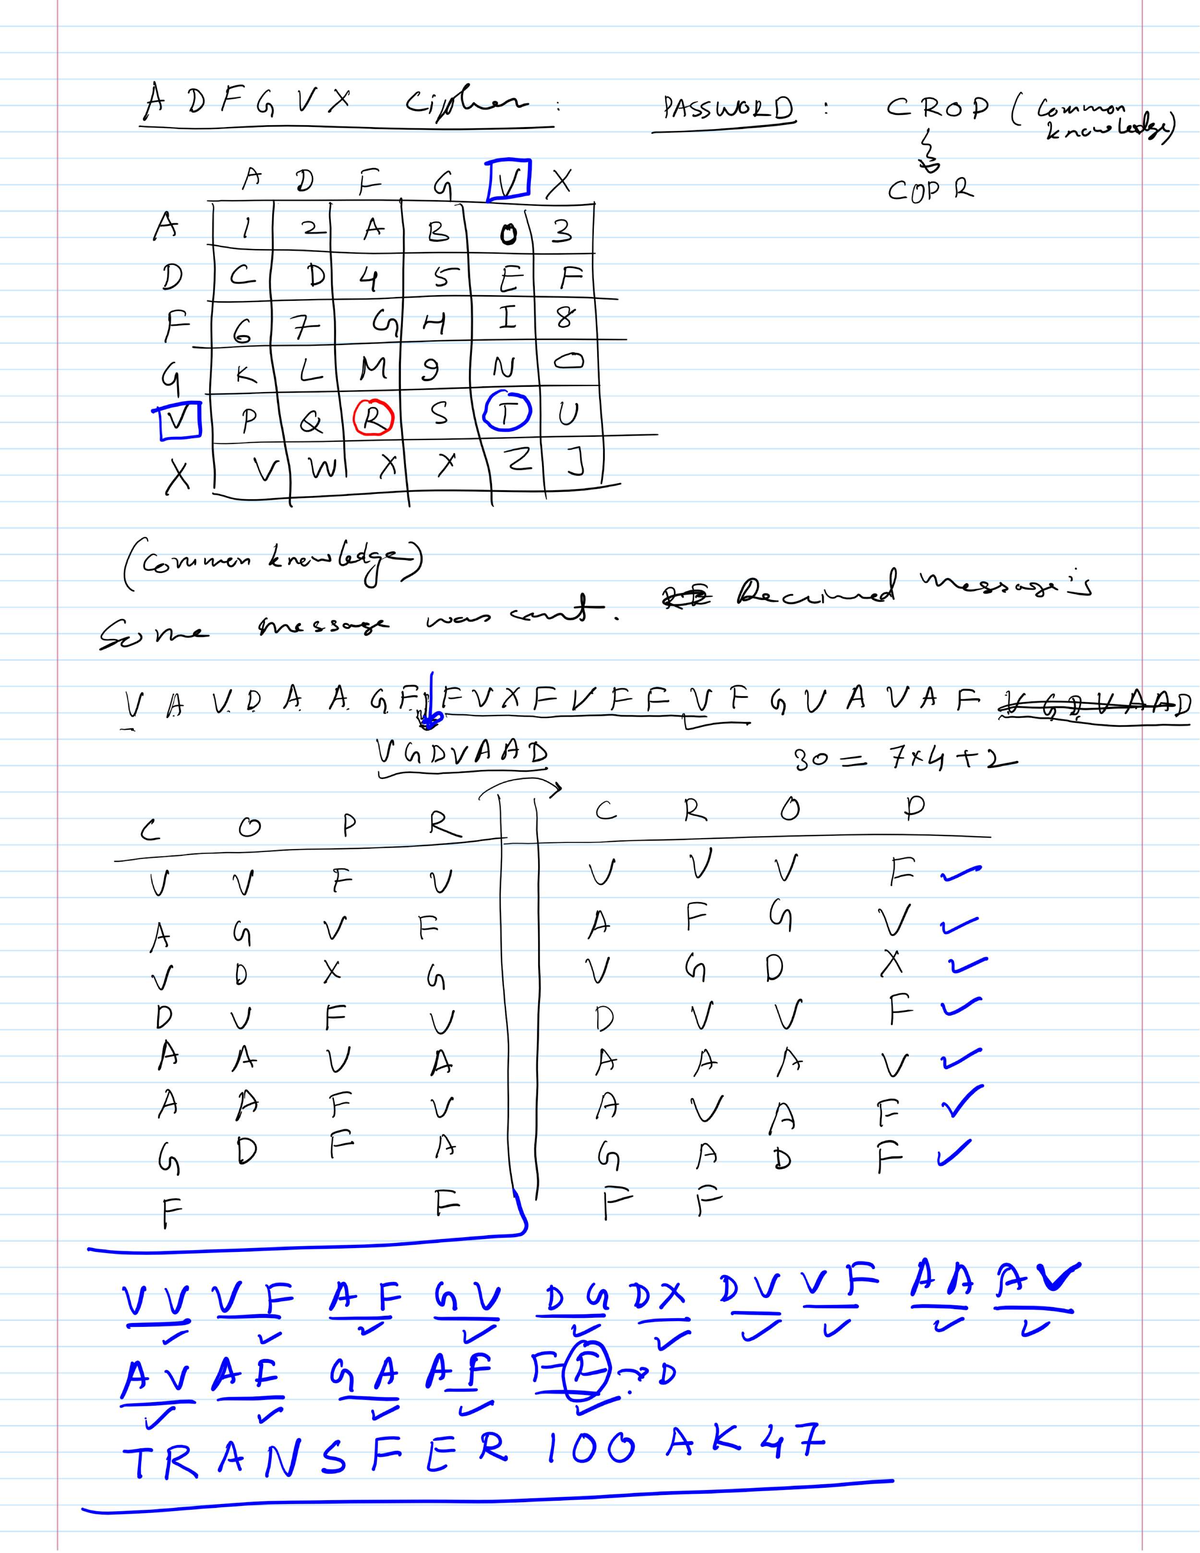 A D F G V X Cipher :
PASSWORD : CROP ( Common knowledge)
COPR
A D F G V X
A 1 2 A B 0 3
D C D 4 5 E F
F 6 7 G H I 8
G K L M 9 N O
V P Q R S T U
X V W X X Z J
(Common knowledge)
Some message was sent. Recieved message is
V A V D A A G F F V X F V F F V F G V A V A F V G D V A A D
V G D V A A D
30 = 7x4+2
C O P R C R O P
V V F V V V V F ✓
A G V F A F G V ✓
V D X G V G D X ✓
D V F V D V V F ✓
A A V A A A A V ✓
A A F V A V A F ✓
G D F A G A D F ✓
F F F F
VV VF AF GV DG DX DV VF AA AV
AV AF GA AF FF → D
TRANSFER 100 AK47